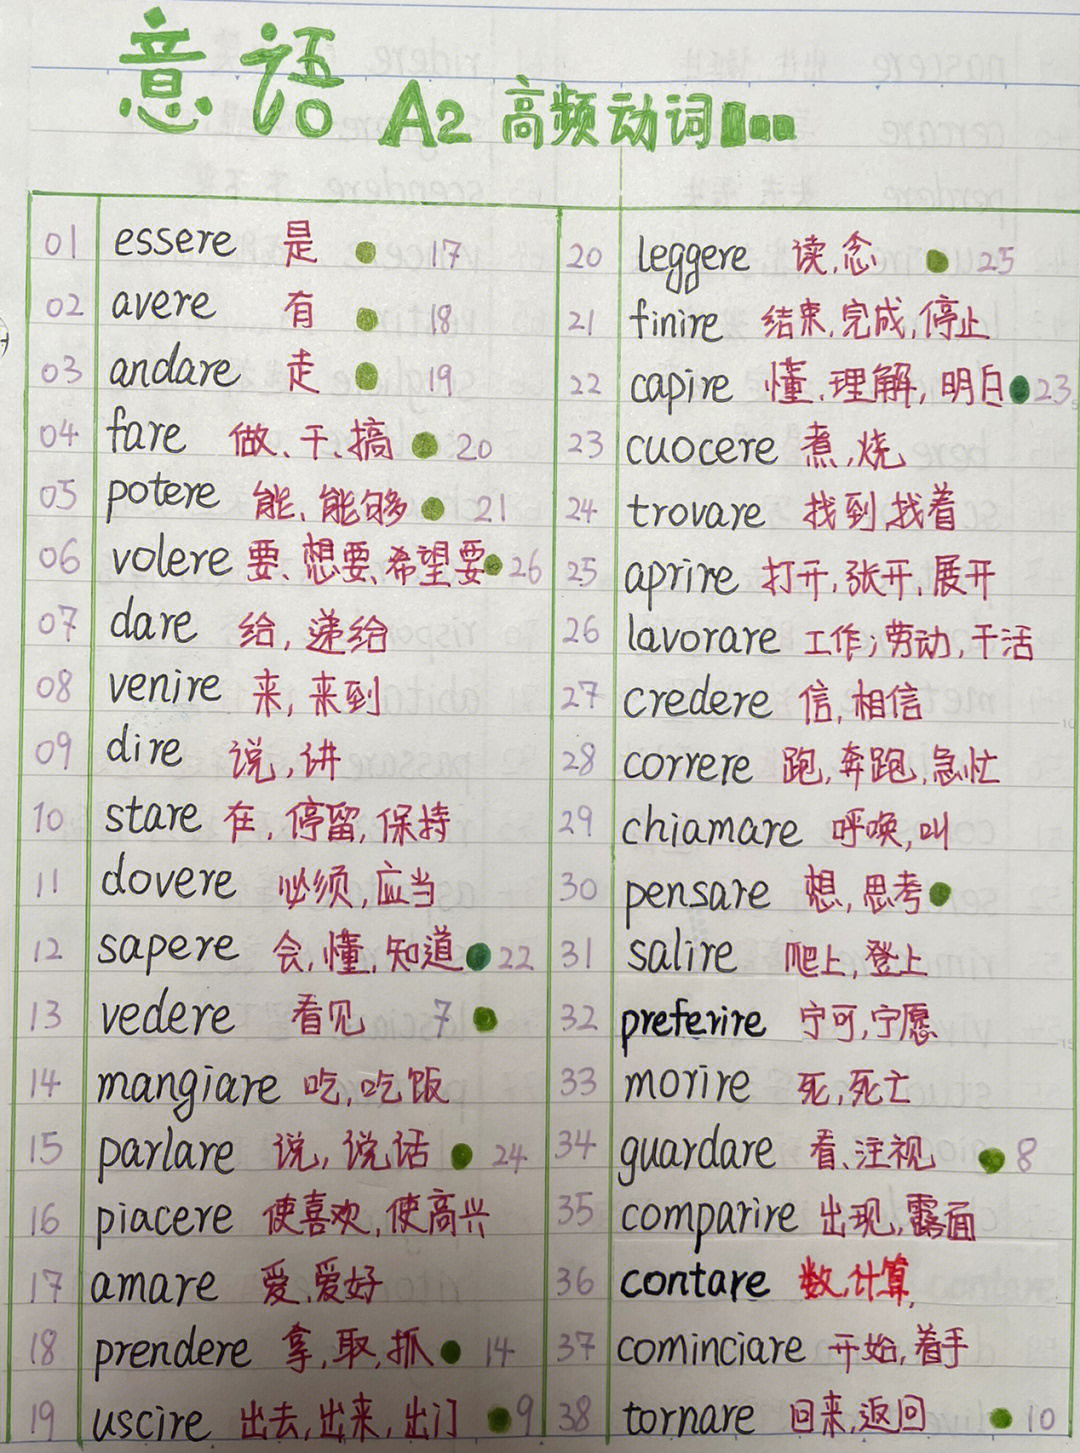 意语 A2 高频动词
01 essere 是 17
02 avere 有 18
03 andare 走 19
04 fare 做、干、搞 20
05 potere 能、能够 21
06 volere 要、想要、希望要 26
07 dare 给, 递给
08 venire 来, 来到
09 dire 说, 讲
10 stare 在, 停留, 保持
11 dovere 必须, 应当
12 sapere 会, 懂, 知道 22
13 vedere 看见 7
14 mangiare 吃, 吃饭
15 parlare 说, 说话 24
16 piacere 使喜欢, 使高兴
17 amare 爱, 爱好
18 prendere 拿, 取, 抓 14
19 uscire 出去, 出来, 出门 9
20 leggere 读, 念 25
21 finire 结束, 完成, 停止
22 capire 懂, 理解, 明白 23
23 cuocere 煮, 烧
24 trovare 找到, 找着
25 aprire 打开, 张开, 展开
26 lavorare 工作; 劳动, 干活
27 credere 信, 相信
28 correre 跑, 奔跑, 急忙
29 chiamare 呼唤, 叫
30 pensare 想, 思考
31 salire 爬上, 登上
32 preferire 宁可, 宁愿
33 morire 死, 死亡
34 guardare 看、注视 8
35 comparire 出现, 露面
36 contare 数, 计算
37 cominciare 开始, 着手
38 tornare 回来, 返回 10